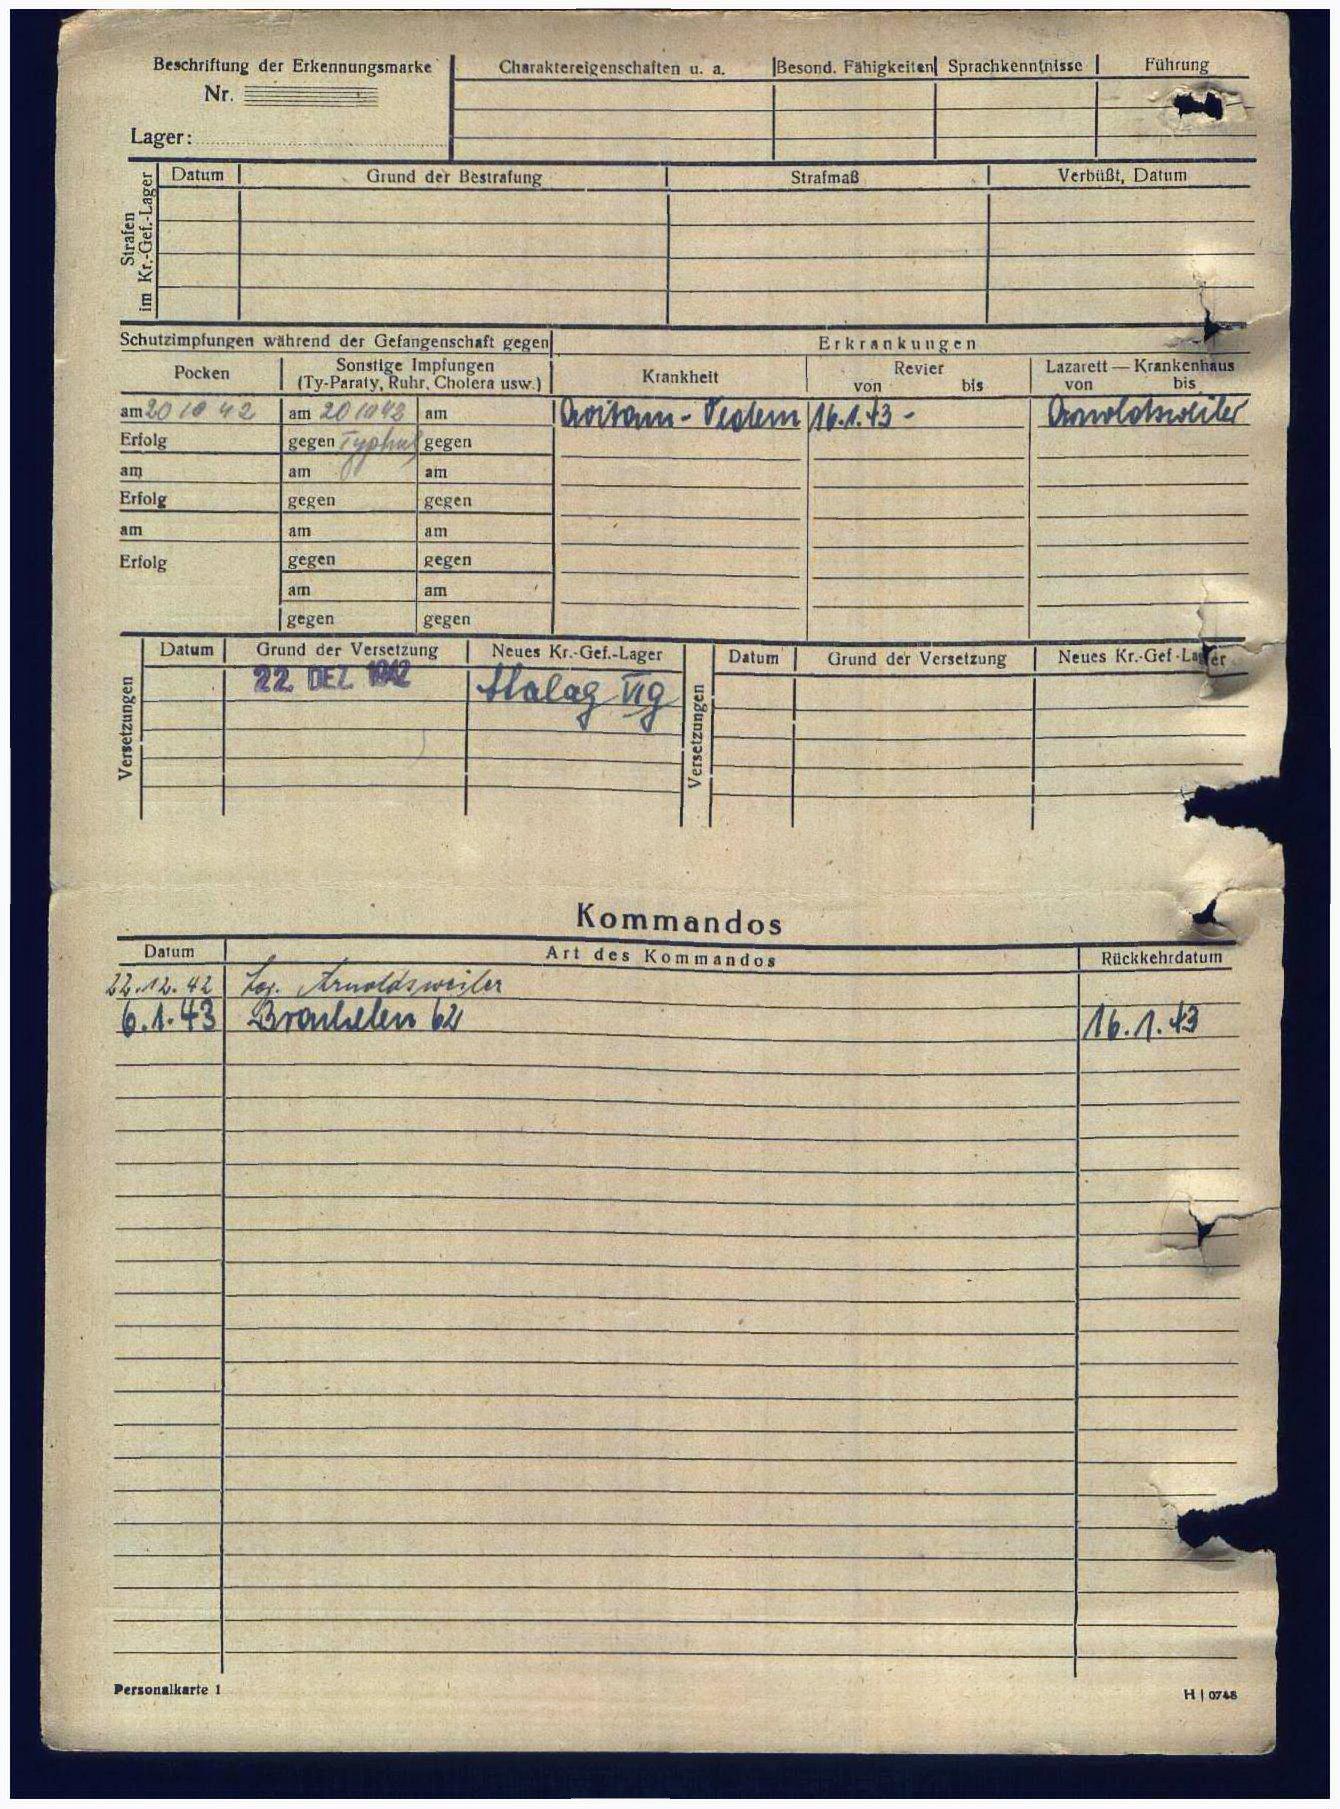 Beschriftung der Erkennungsmarke
Nr.
Lager:
Charaktereigenschaften u. a. Besond. Fähigkeiten Sprachkenntnisse Führung
Strafen
im Kr.-Gef.-Lager
Datum Grund der Bestrafung Strafmaß Verbüßt, Datum
Schutzimpfungen während der Gefangenschaft gegen
Erkrankungen
Pocken
Sonstige Impfungen
(Ty-Paraty, Ruhr, Cholera usw.)
Krankheit
Revier
von bis
Lazarett — Krankenhaus
von bis
am 20 10 42 am 20 10 42 am
16.1.43 - Arnoldsweiler
Erfolg gegen Typhus gegen
am am am
Erfolg gegen gegen
am am am
Erfolg gegen gegen
am am
gegen gegen
Versetzungen
Datum Grund der Versetzung Neues Kr.-Gef.-Lager
22. DEZ. 1942 Stalag VIg
Versetzungen
Datum Grund der Versetzung Neues Kr.-Gef-Lager
Kommandos
Datum Art des Kommandos Rückkehrdatum
22.12.42 Lag. Arnoldsweiler
6.1.43 62 16.1.43
Personalkarte 1
H | 0748